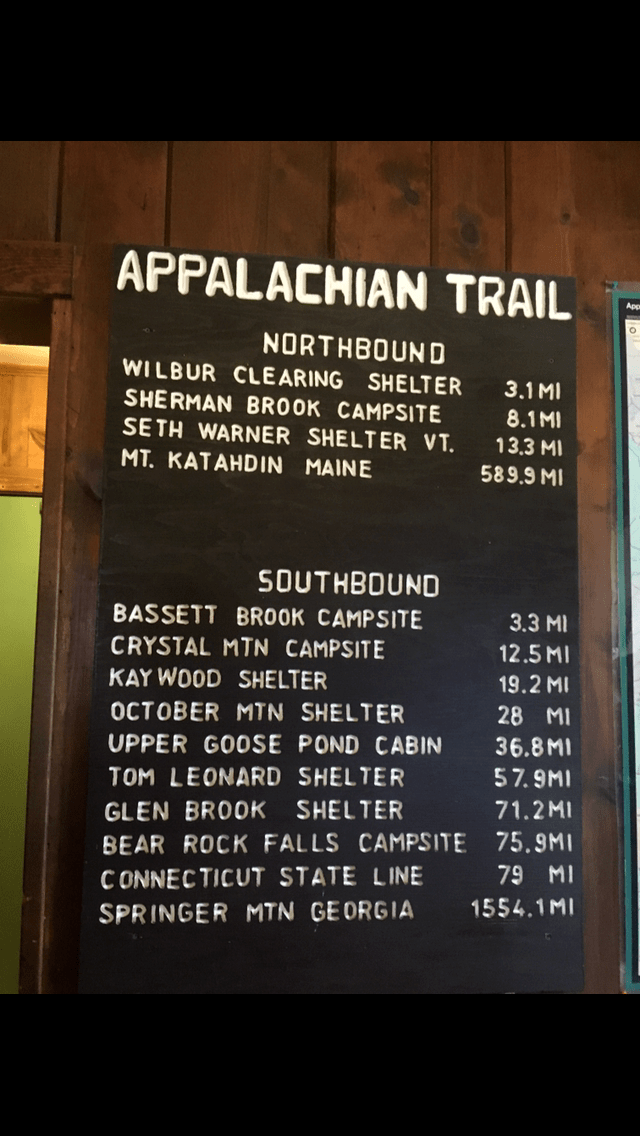 APPALACHIAN TRAIL
NORTHBOUND
WILBUR CLEARING SHELTER 3.1 MI
SHERMAN BROOK CAMPSITE 8.1 MI
SETH WARNER SHELTER VT. 13.3 MI
MT. KATAHDIN MAINE 589.9 MI
SOUTHBOUND
BASSETT BROOK CAMPSITE 3.3 MI
CRYSTAL MTN CAMPSITE 12.5 MI
KAY WOOD SHELTER 19.2 MI
OCTOBER MTN SHELTER 28 MI
UPPER GOOSE POND CABIN 36.8 MI
TOM LEONARD SHELTER 57.9 MI
GLEN BROOK SHELTER 71.2 MI
BEAR ROCK FALLS CAMPSITE 75.9 MI
CONNECTICUT STATE LINE 79 MI
SPRINGER MTN GEORGIA 1554.1 MI
App